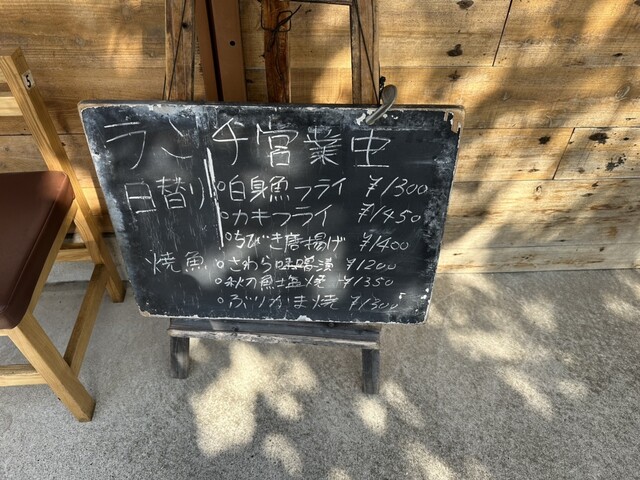 ランチ営業中
日替り ○白身魚フライ ¥1300
○カキフライ ¥1450
○ちびき唐揚げ ¥1400
焼魚 ○さわら味噌漬 ¥1200
○秋刀魚塩焼 ¥1350
○ぶりかま焼 ¥1300